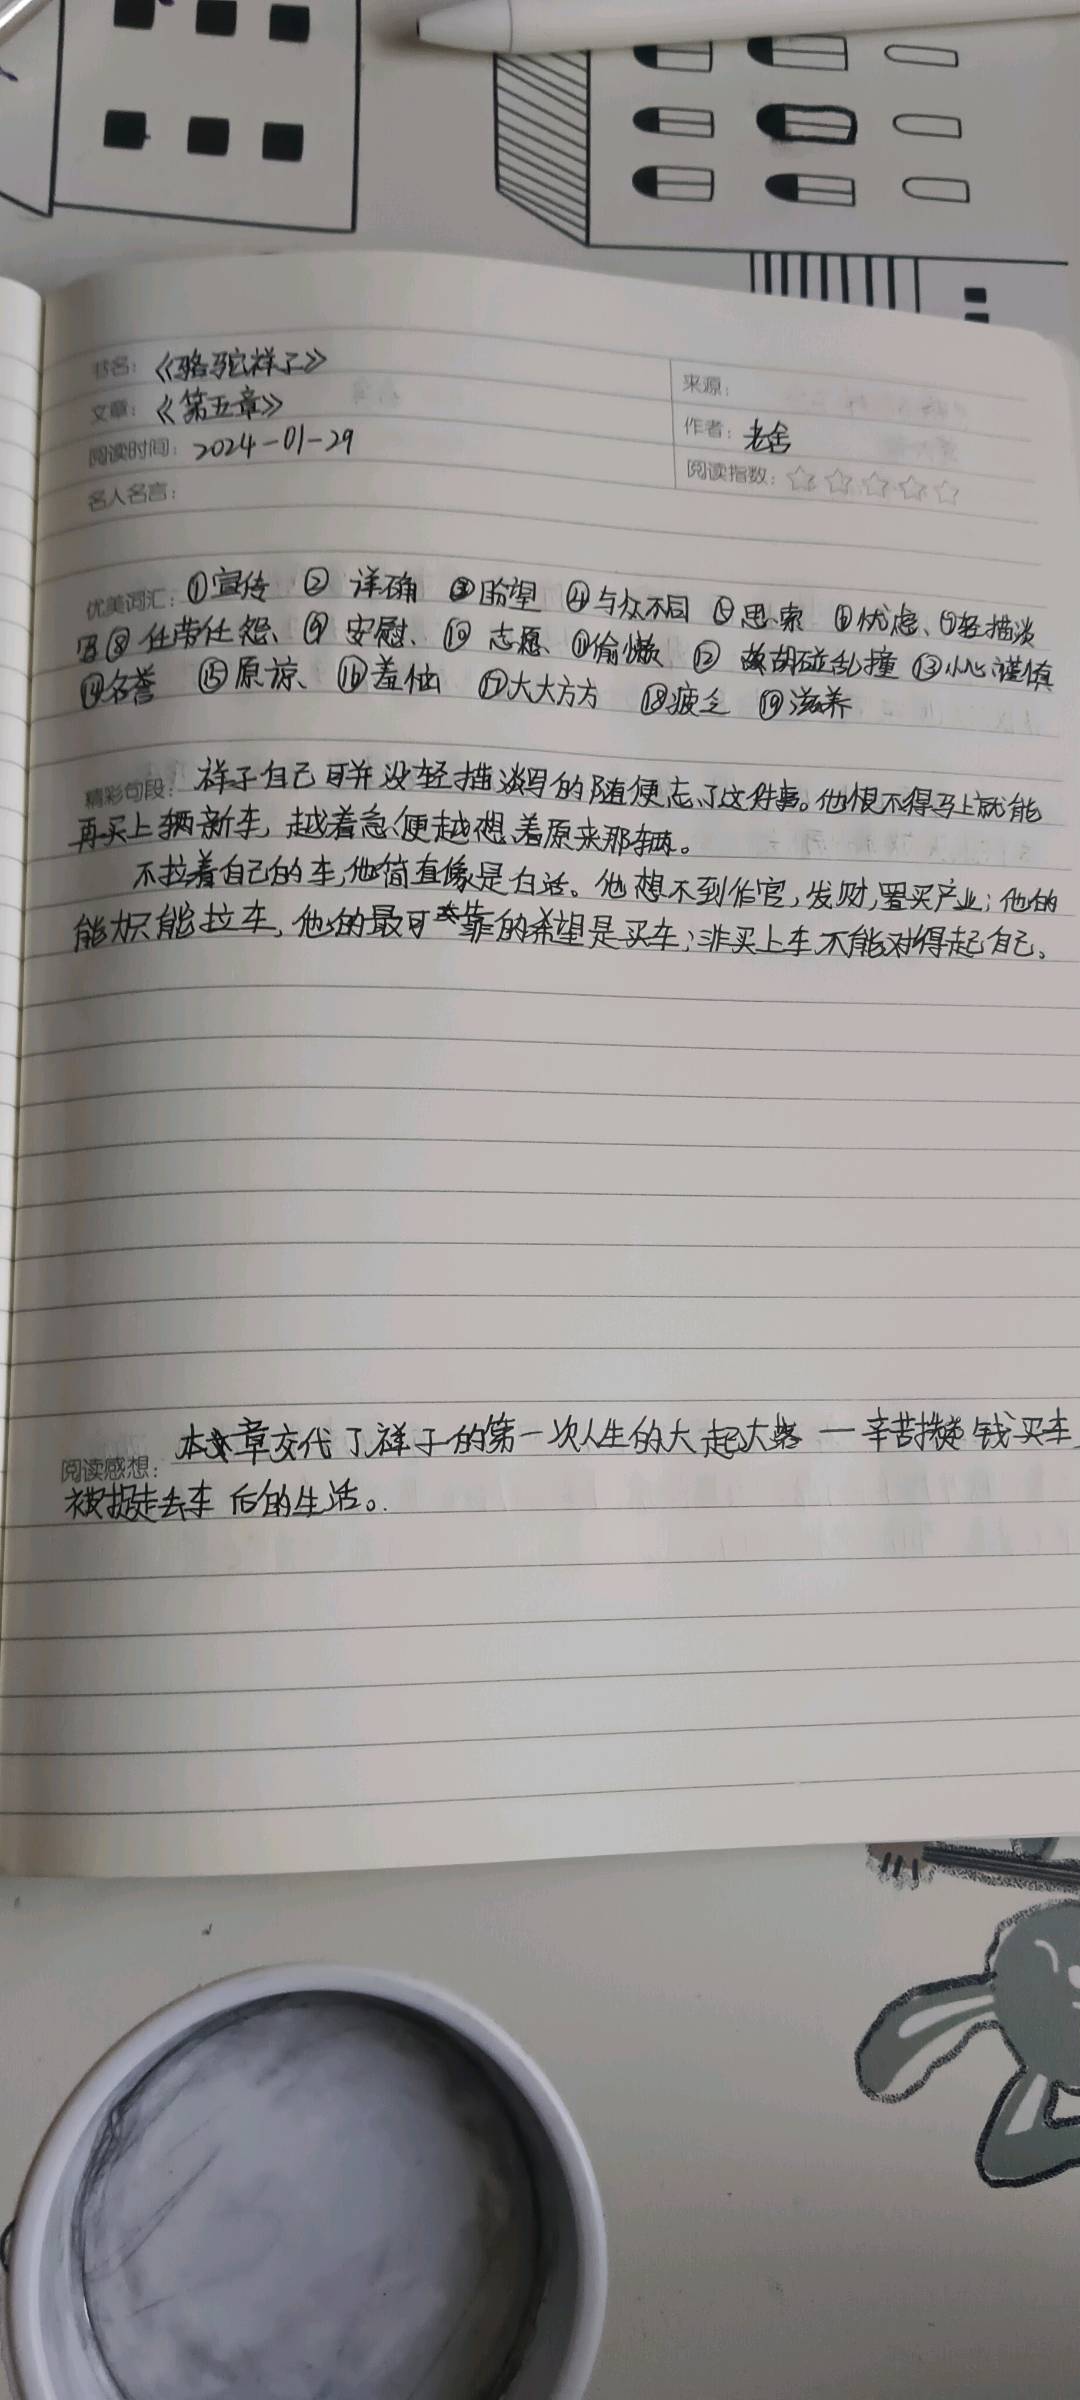 书名：《骆驼祥子》
来源：
文章：《第五章》
作者：老舍
阅读时间：2024-01-29
阅读指数：☆☆☆☆☆
名人名言：
优美词汇：①宣传 ② 详确 ③盼望 ④与众不同 ⑤思索 ⑥忧虑、⑦轻描淡
写⑧任劳任怨、⑨ 安慰、⑩ 志愿、⑪偷懒 ⑫ 胡碰乱撞 ⑬小心谨慎
⑭名誉 ⑮原谅、⑯羞惭 ⑰大大方方 ⑱疲乏 ⑲滋养
精彩句段：祥子自己可并没轻描淡写的随便忘了这件事。他恨不得马上就能
再买上辆新车，越着急便越想着原来那辆。
不拉着自己的车，他简直像是白活。他想不到作官，发财，置买产业；他的
能力只能拉车，他的最可靠的希望是买车；非买上车不能对得起自己。
阅读感想：本章交代了祥子的第一次人生的大起大落 — 辛苦攒钱买车
被捉走去车后的生活。